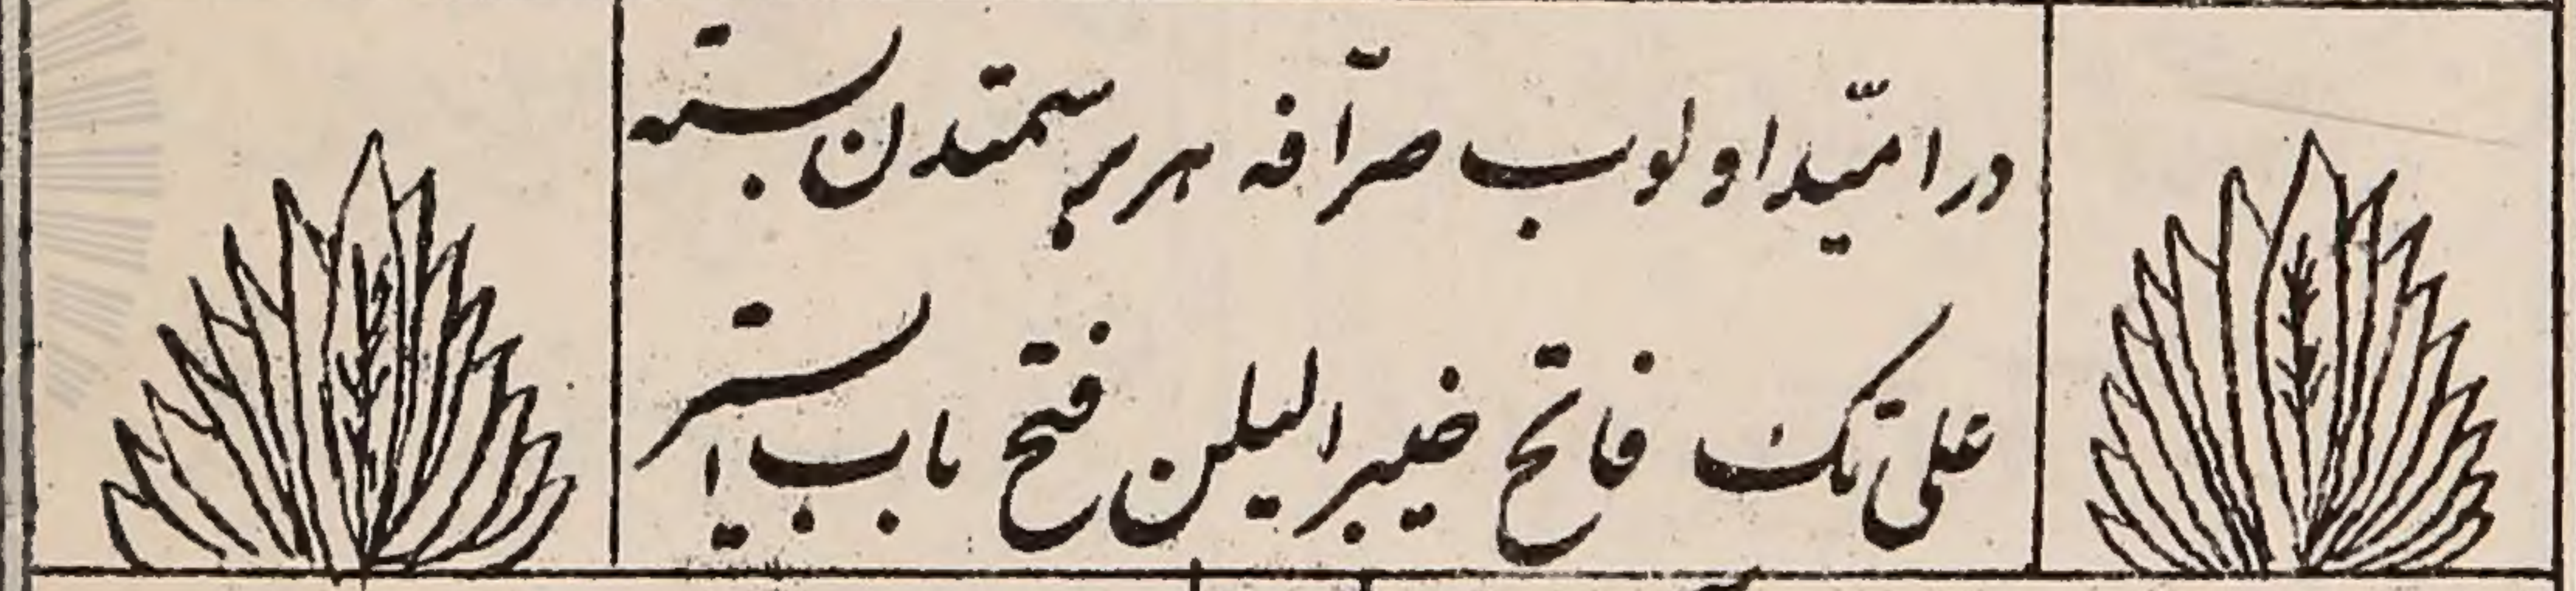 در امّید اولوب صرّافه هر بر سمتدن بسته
علی تک فاتح خیبر الیلن فتح باب ایستر